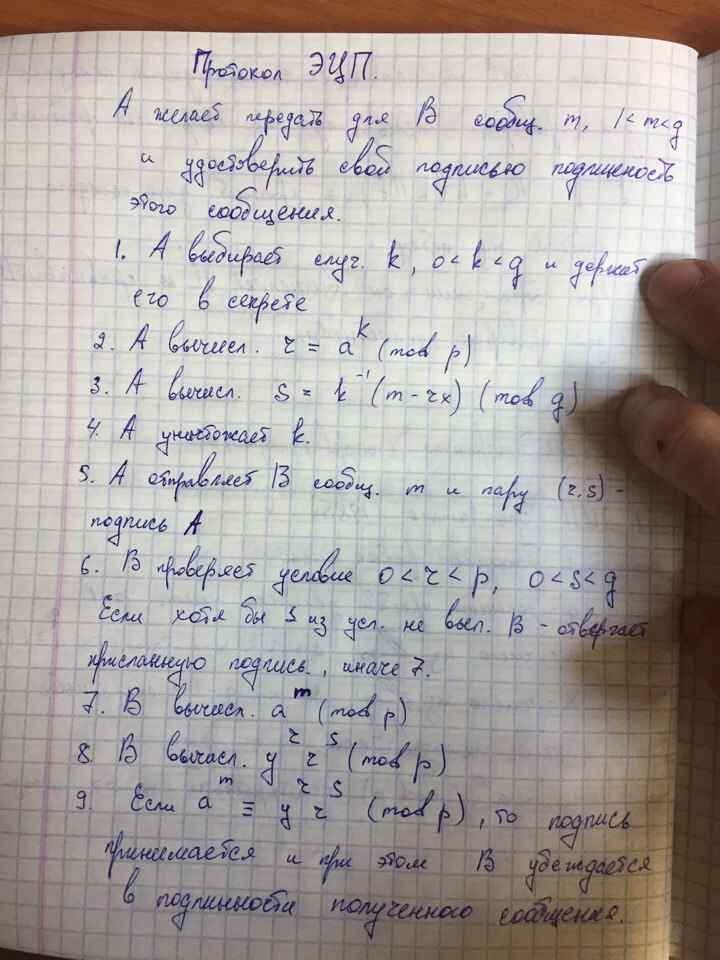 Протокол ЭЦП.
А желает передать для В сообщ. m, 1< m<g
и удостоверить свой подписью подлинность
этого сообщения.
1. А выбирает случ. k, 0< k<g и держит
его в секрете
2. А вычисл. r = a^k (mod p)
3. А вычисл. s = k^-1 (m - rx) (mod g)
4. А уничтожает k.
5. А отправляет В сообщ. m и пару (r.s) -
подпись А
6. В проверяет условие 0<r<p, 0<s<g
Если хотя бы 1 из усл. не вып. В - отвергает
присланную подпись, иначе 7.
7. В вычисл. a^m (mod p)
8. В вычисл. y^r r^s (mod p)
9. Если a^m ≡ y^r r^s (mod p), то подпись
принимается и при этом В убеждается
в подлинности полученного сообщения.